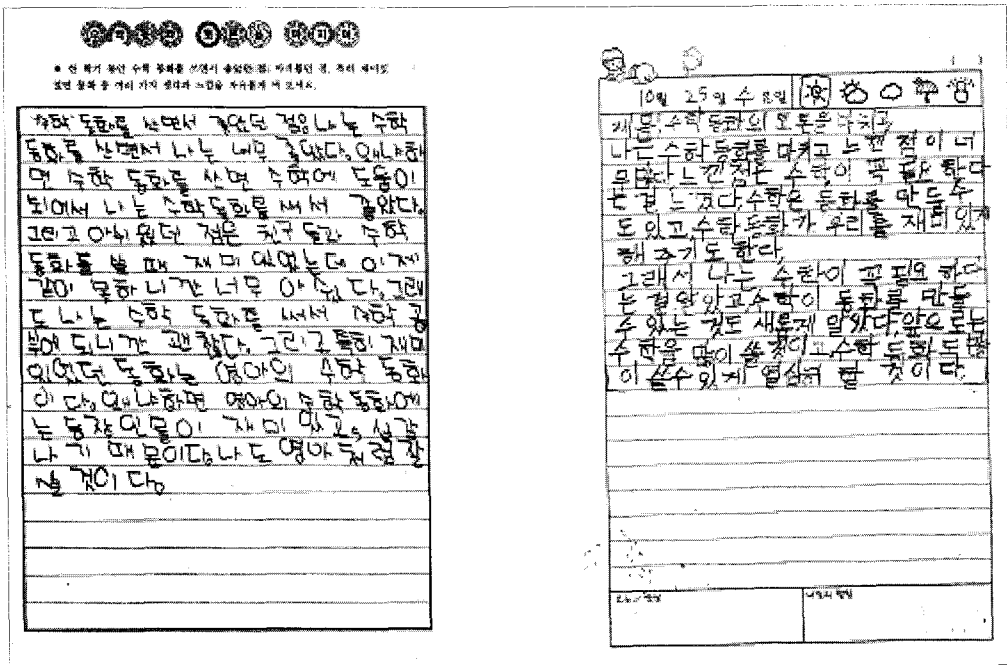 수학동화 토론을 마치며
※ 한 학기 동안 수학 동화를 쓰면서 좋았던 점, 아쉬웠던 점, 특히 재미있
었던 동화 등 여러 가지 생각과 느낌을 자유롭게 써 보세요.
수학 동화를 쓰면서 좋았던 점은 나는 수학
동화를 쓰면서 나는 너무 좋았다. 왜냐하
면 수학 동화를 쓰면 수학에 도움이
되어서 나는 수학동화를 써서 좋았다.
그리고 아쉬웠던 점은 친구들과 수학
동화를 쓸 때 재미있었는데 이제
같이 못하니까 너무 아쉽다. 그래
도 나는 수학 동화를 써서 수학 공
부에 되니까 괜찮다. 그리고 특히 재미
있었던 동화는 영아의 수학 동화
이다. 왜냐하면 영아의 수학 동화에
는 등장인물이 재미있고, 실감
나기 때문이다. 나도 영아처럼 잘
쓸 것이다.
10월 25일 수요일
제목: 수학 동화의 토론을 마치고
나는 수학 동화를 마치고 느낀 점이 너
무 많다. 느낀 점은 수학이 꼭 필요하다
는 걸 느꼈다. 수학은 동화를 만들 수
도 있고 수학 동화가 우리를 재미있게
해 주기도 한다.
그래서 나는 수학이 꼭 필요하다
는 걸 알았고, 수학이 동화를 만들
수 있는 것도 새롭게 알았다. 앞으로는
수학을 많이 쓸 것이고, 수학 동화도 많
이 쓸 수 있게 열심히 할 것이다.